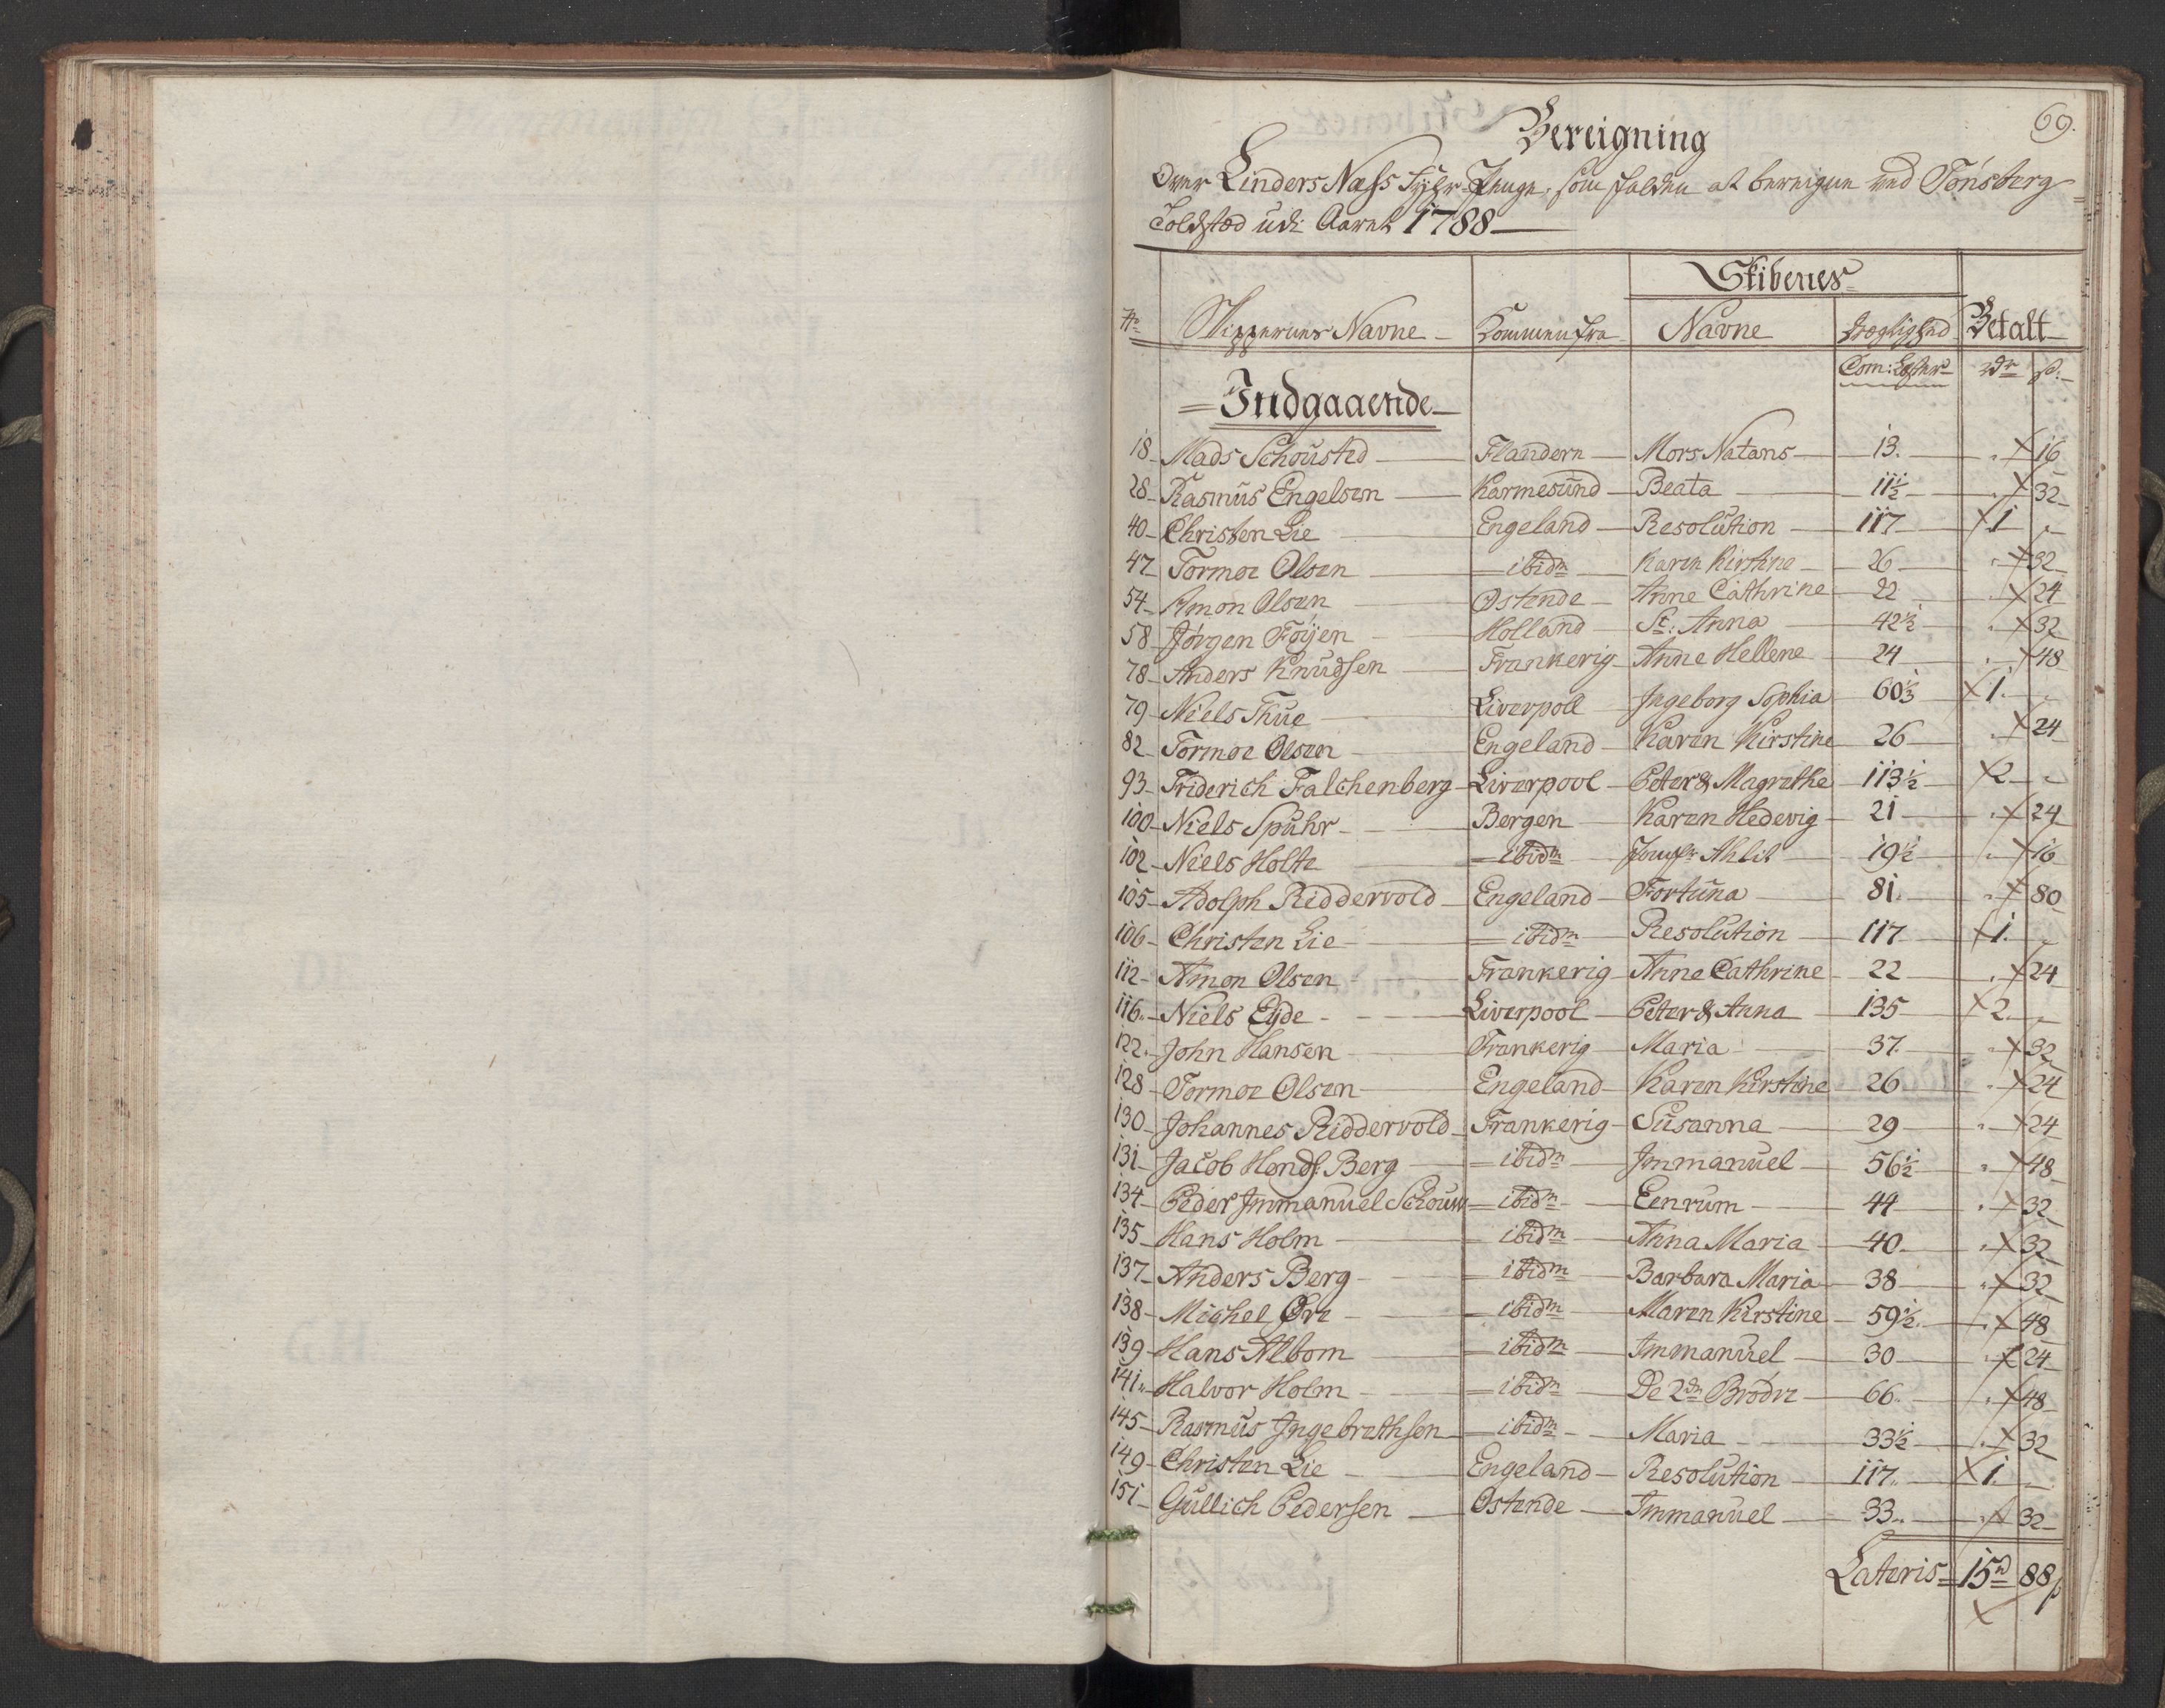 69.
Bereigning
Over Linders Næss Fyhr-Penge, som falden at bereigne ved Tönsberg
Toldsted udi Aaret 1788
Skibenes
No Skippernes Navne Kommen fra Navne Drægtighed Betalt
Com: Læster rdr s:
Indgaaende
18 Mads Schousted Flandern Mors Natans 13. " 16
28 Rasmus Engelsen Karmesund Beata 11½ " 32
40 Christen Lie Engeland Resolution 117 1 "
47 Tormoe Olsen ibidm Karen Kirstine 26 " 32
54 Amon Olsen Ostende Anne Cathrine 22 " 24
58 Jörgen Föyen Holland St: Anna 42½ " 32
78 Anders Knudsen Frankerig Anne Hellene 24 " 48
79 Niels Thue Liverpoll Ingeborg Sophia 60⅓ 1. "
82 Tormoe Olsen Engeland Karen Kirstine 26 " 24
93 Friderich Falchenberg Liverpool Peter & Magrethe 113½ 2 "
100 Niels Spuhr Bergen Karen Hedevig 21 " 24
102 Niels Holte ibidm Jomfr Ahlit 19½ " 16
105 Adolph Riddervold Engeland Fortuna 81. " 80
106 Christen Lie ibidm Resolution 117 1. "
112 Amon Olsen Frankerig Anne Cathrine 22 " 24
116. Niels Eyde Liverpool Peter & Anna 135 2. "
122. John Hansen Frankerig Maria 37. " 32
128 Tormoe Olsen Engeland Karen Kirstine 26 " 24
130 Johannes Riddervold Frankerig Susanna 29 " 24
131 Jacob Hends: Berg ibidm Immanuel 56½ " 48
134 Peder Immanuel Schouw ibidm Eenrum 44 " 32
135 Hans Holm ibidm Anna Maria 40 " 32
137 Anders Berg ibidm Barbara Maria 38 " 32
138 Michel Øre ibidm Maren Kirstine 59½. " 48
139 Hans Albom ibidm Immanuel 30 " 24
141. Halvor Holm ibidm De 2de Brödre 66. " 48
145 Rasmus Ingebrethsen ibidm Maria 33½ " 32
149 Christen Lie Engeland Resolution 117. 1. "
151 Gullich Pedersen Ostende Immanuel 33. " 32
Lateris 15rd 88s